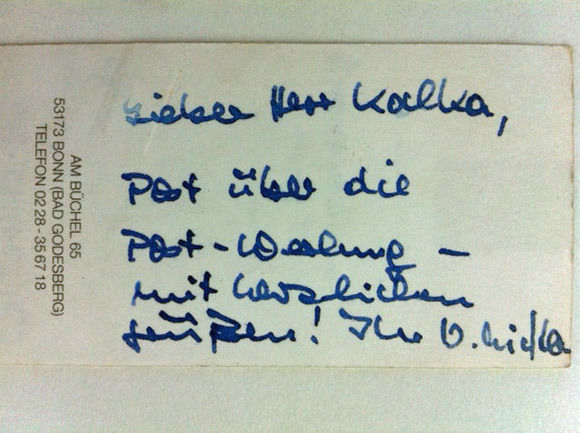 AM BÜCHEL 65
53173 BONN (BAD GODESBERG)
TELEFON 02 28 - 35 67 18
Lieber Herr Kalka,
Post über die
Post-Werbung –
mit herzlichen
Grüßen! Ihr